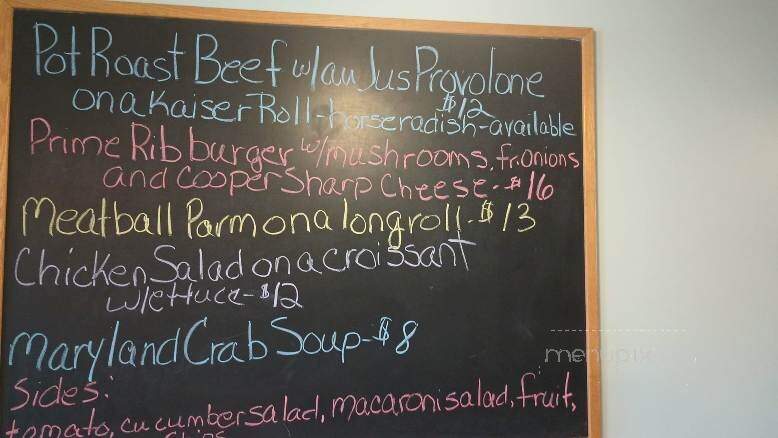 Pot Roast Beef w/au Jus Provolone
on a Kaiser Roll - horseradish - available $12
Prime Rib burger w/mushrooms, fr. onions
and Cooper Sharp Cheese - $16
Meatball Parm on a long roll - $13
Chicken Salad on a croissant
w/lettuce - $12
Maryland Crab Soup - $8
Sides:
tomato, cucumber salad, macaroni salad, fruit,
menupix